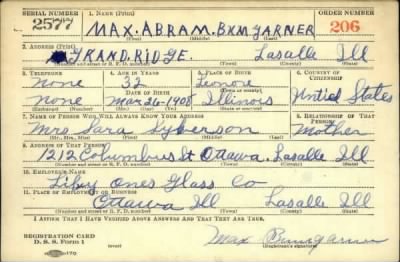 SERIAL NUMBER 1. NAME (Print) ORDER NUMBER
2577 MAX. ABRAM. BXMGARNER 206
(First) (Middle) (Last)
2. ADDRESS (Print)
GRAND RIDGE. Lasalle Ill
(Number and street or R. F. D. number) (Town) (County) (State)
3. TELEPHONE 4. AGE IN YEARS 5. PLACE OF BIRTH 6. COUNTRY OF CITIZENSHIP
None 32 Leonore
DATE OF BIRTH (Town or county)
None Mar 26-1908 Illinois United States
(Exchange) (Number) (Mo.) (Day) (Yr.) (State or country)
7. NAME OF PERSON WHO WILL ALWAYS KNOW YOUR ADDRESS 8. RELATIONSHIP OF THAT PERSON
Mrs Sara Syverson Mother
(Mr., Mrs., Miss) (First) (Middle) (Last)
9. ADDRESS OF THAT PERSON
1212 Columbus St Ottawa. Lasalle Ill
(Number and street or R. F. D. number) (Town) (County) (State)
10. EMPLOYER'S NAME
Liby Ones Glass Co
11. PLACE OF EMPLOYMENT OR BUSINESS
Ottawa Ill Lasalle Ill
(Number and street or R. F. D. number) (Town) (County) (State)
I AFFIRM THAT I HAVE VERIFIED ABOVE ANSWERS AND THAT THEY ARE TRUE.
REGISTRATION CARD
D. S. S. Form 1 Max Bumgarner
(Registrant's signature)